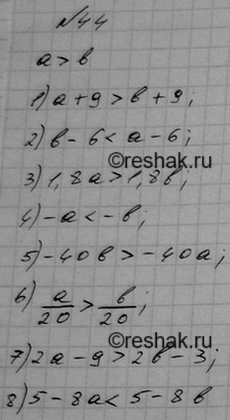 №44
a > b
1) a + 9 > b + 9;
2) b - 6 < a - 6;
©reshak.ru
3) 1,8a > 1,8b;
4) -a < -b;
5) -40b > -40a;
6) a/20 > b/20;
©reshak.ru
7) 2a - 9 > 2b - 3;
8) 5 - 8a < 5 - 8b